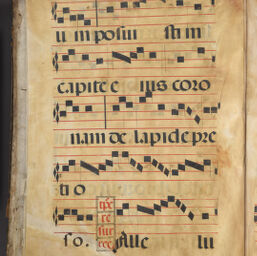 u im posui sti in
capite e ius coro
nam de lapide pre
ti o
so. Alle lu